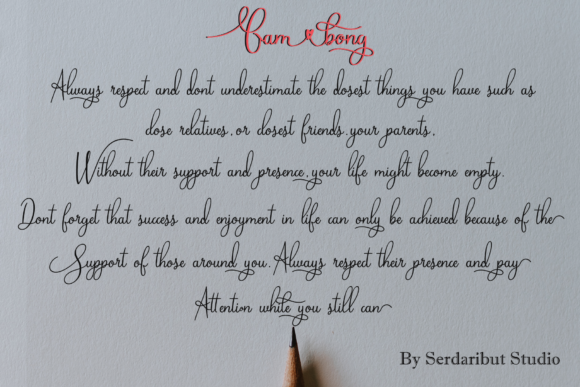 Bam bong
Always respect and dont underestimate the closest things you have such as
close relatives, or closest friends.your parents,
Without their support and presence,your life might become empty.
Dont forget that success and enjoyment in life can only be achieved because of the
Support of those around you. Always respect their presence and pay
Attention while you still can
By Serdaribut Studio